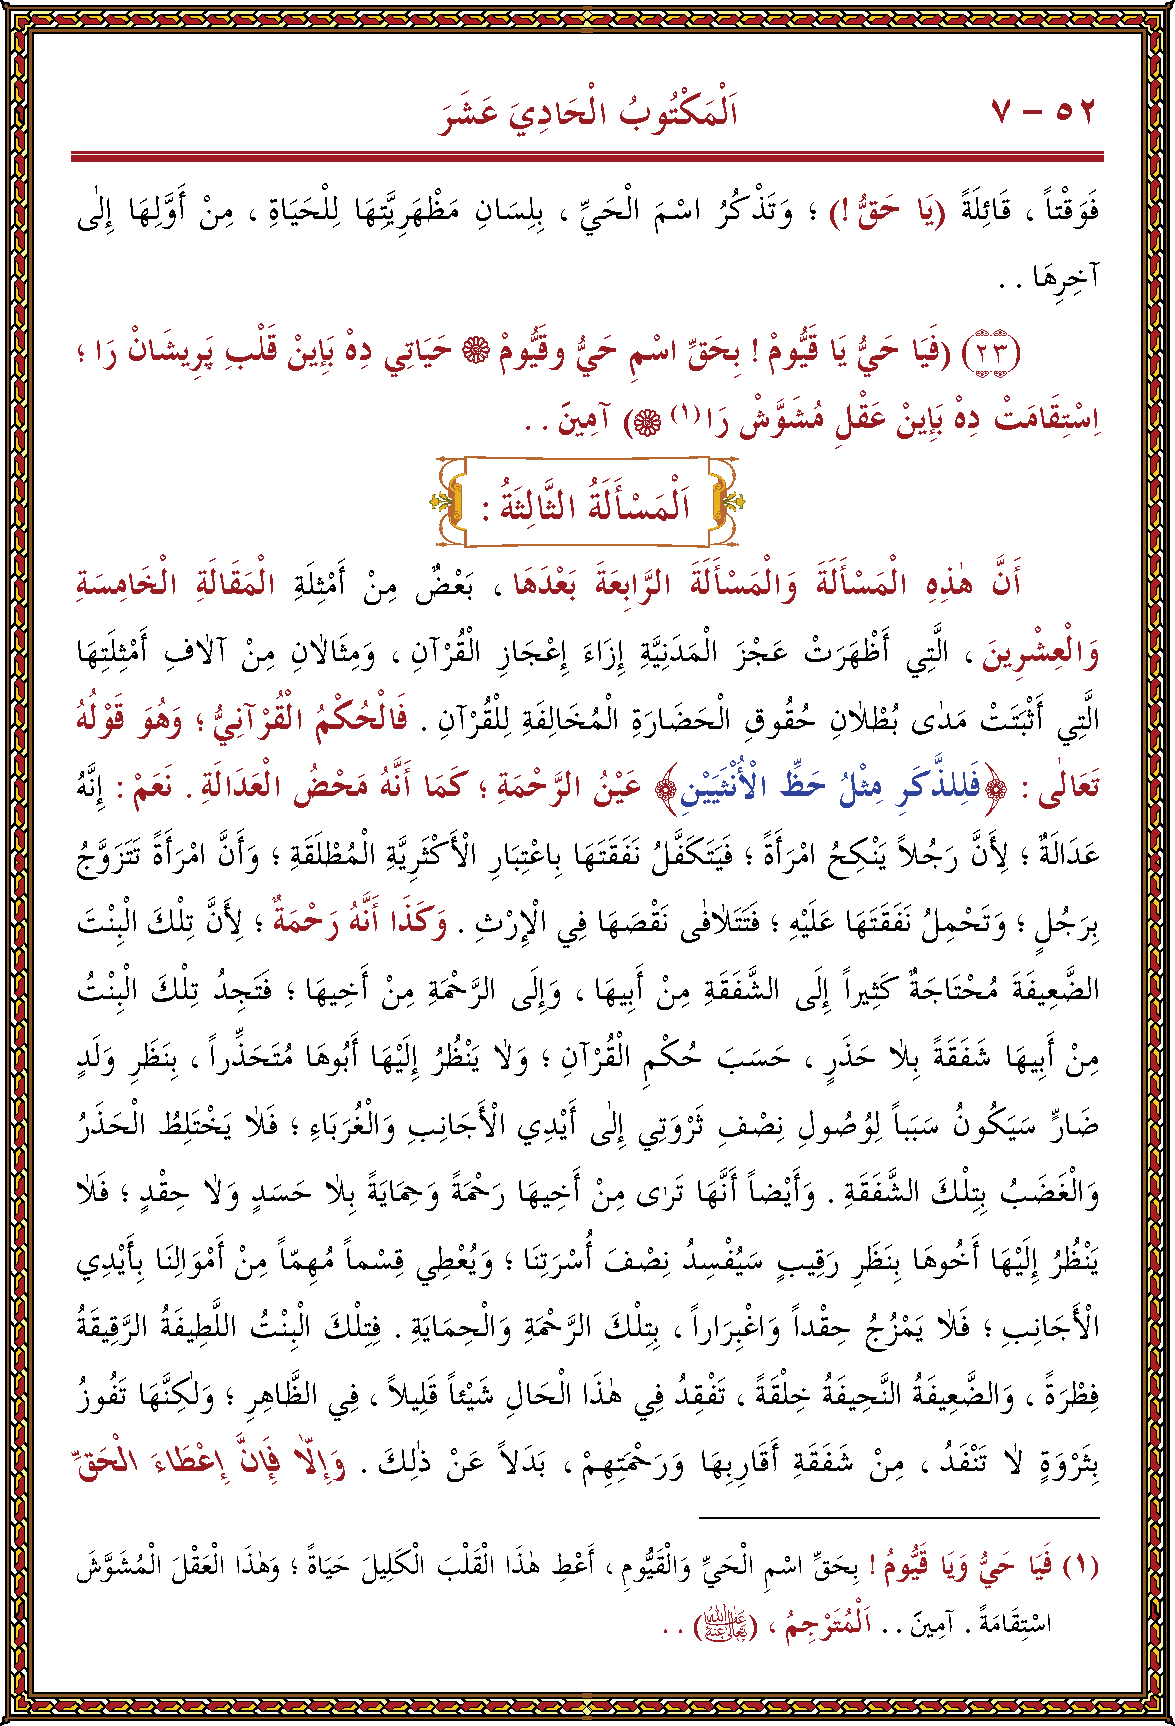 ٥٢ - ٧ اَلْمَكْتُوبُ الْحَادِيَ عَشَرَ
فَوَقْتاً ، قَائِلَةً (يَا حَقُّ !) ؛ وَتَذْكُرُ اسْمَ الْحَيِّ ، بِلِسَانِ مَظْهَرِيَّتِهَا لِلْحَيَاةِ ، مِنْ أَوَّلِهَا إِلٰى
آخِرِهَا . .
(٢٣) (فَيَا حَيُّ يَا قَيُّومْ ! بِحَقِّ اسْمِ حَيُّ وقَيُّومْ ۞ حَيَاتِي دِهْ بَإِينْ قَلْبِ پَرِيشَانْ رَا ؛
اِسْتِقَامَتْ دِهْ بَإِينْ عَقْلِ مُشَوَّشْ رَا (١) ۞) آمِينَ . .
اَلْمَسْأَلَةُ الثَّالِثَةُ :
أَنَّ هٰذِهِ الْمَسْأَلَةَ وَالْمَسْأَلَةَ الرَّابِعَةَ بَعْدَهَا ، بَعْضٌ مِنْ أَمْثِلَةِ الْمَقَالَةِ الْخَامِسَةِ
وَالْعِشْرِينَ ، الَّتِي أَظْهَرَتْ عَجْزَ الْمَدَنِيَّةِ إِزَاءَ إِعْجَازِ الْقُرْآنِ ، وَمِثَالاٰنِ مِنْ آلاٰفِ أَمْثِلَتِهَا
الَّتِي أَثْبَتَتْ مَدٰى بُطْلاٰنِ حُقُوقِ الْحَضَارَةِ الْمُخَالِفَةِ لِلْقُرْآنِ . فَالْحُكْمُ الْقُرْآنِيُّ ؛ وَهُوَ قَوْلُهُ
تَعَالٰى : ﴿فَلِلذَّكَرِ مِثْلُ حَظِّ الْأُنْثَيَيْنِ﴾ عَيْنُ الرَّحْمَةِ ؛ كَمَا أَنَّهُ مَحْضُ الْعَدَالَةِ . نَعَمْ : إِنَّهُ
عَدَالَةٌ ؛ لِأَنَّ رَجُلاً يَنْكِحُ امْرَأَةً ؛ فَيَتَكَفَّلُ نَفَقَتَهَا بِاعْتِبَارِ الْأَكْثَرِيَّةِ الْمُطْلَقَةِ ؛ وَأَنَّ امْرَأَةً تَتَزَوَّجُ
بِرَجُلٍ ؛ وَتَحْمِلُ نَفَقَتَهَا عَلَيْهِ ؛ فَتَتَلاٰفٰى نَقْصَهَا فِي الْإِرْثِ . وَكَذَا أَنَّهُ رَحْمَةٌ ؛ لِأَنَّ تِلْكَ الْبِنْتَ
الضَّعِيفَةَ مُحْتَاجَةٌ كَثِيراً إِلَى الشَّفَقَةِ مِنْ أَبِيهَا ، وَإِلَى الرَّحْمَةِ مِنْ أَخِيهَا ؛ فَتَجِدُ تِلْكَ الْبِنْتُ
مِنْ أَبِيهَا شَفَقَةً بِلاٰ حَذَرٍ ، حَسَبَ حُكْمِ الْقُرْآنِ ؛ وَلاٰ يَنْظُرُ إِلَيْهَا أَبُوهَا مُتَحَذِّراً ، بِنَظَرِ وَلَدٍ
ضَارٍّ سَيَكُونُ سَبَباً لِوُصُولِ نِصْفِ ثَرْوَتِي إِلٰى أَيْدِي الْأَجَانِبِ وَالْغُرَبَاءِ ؛ فَلاٰ يَخْتَلِطُ الْحَذَرُ
وَالْغَضَبُ بِتِلْكَ الشَّفَقَةِ . وَأَيْضاً أَنَّهَا تَرٰى مِنْ أَخِيهَا رَحْمَةً وَحِمَايَةً بِلاٰ حَسَدٍ وَلاٰ حِقْدٍ ؛ فَلاٰ
يَنْظُرُ إِلَيْهَا أَخُوهَا بِنَظَرِ رَقِيبٍ سَيُفْسِدُ نِصْفَ أُسْرَتِنَا ؛ وَيُعْطِي قِسْماً مُهِمّاً مِنْ أَمْوَالِنَا بِأَيْدِي
الْأَجَانِبِ ؛ فَلاٰ يَمْزُجُ حِقْداً وَاغْبِرَاراً ، بِتِلْكَ الرَّحْمَةِ وَالْحِمَايَةِ . فَتِلْكَ الْبِنْتُ اللَّطِيفَةُ الرَّقِيقَةُ
فِطْرَةً ، وَالضَّعِيفَةُ النَّحِيفَةُ خِلْقَةً ، تَفْقِدُ فِي هٰذَا الْحَالِ شَيْئاً قَلِيلاً ، فِي الظَّاهِرِ ؛ وَلٰكِنَّهَا تَفُوزُ
بِثَرْوَةٍ لاٰ تَنْفَدُ ، مِنْ شَفَقَةِ أَقَارِبِهَا وَرَحْمَتِهِمْ ، بَدَلاً عَنْ ذٰلِكَ . وَإِلاّٰ فَإِنَّ إِعْطَاءَ الْحَقِّ
(١) فَيَا حَيُّ وَيَا قَيُّومُ ! بِحَقِّ اسْمِ الْحَيِّ وَالْقَيُّومِ ، أَعْطِ هٰذَا الْقَلْبَ الْكَلِيلَ حَيَاةً ؛ وَهٰذَا الْعَقْلَ الْمُشَوَّشَ
اسْتِقَامَةً . آمِينَ . . اَلْمُتَرْجِمُ ، . .